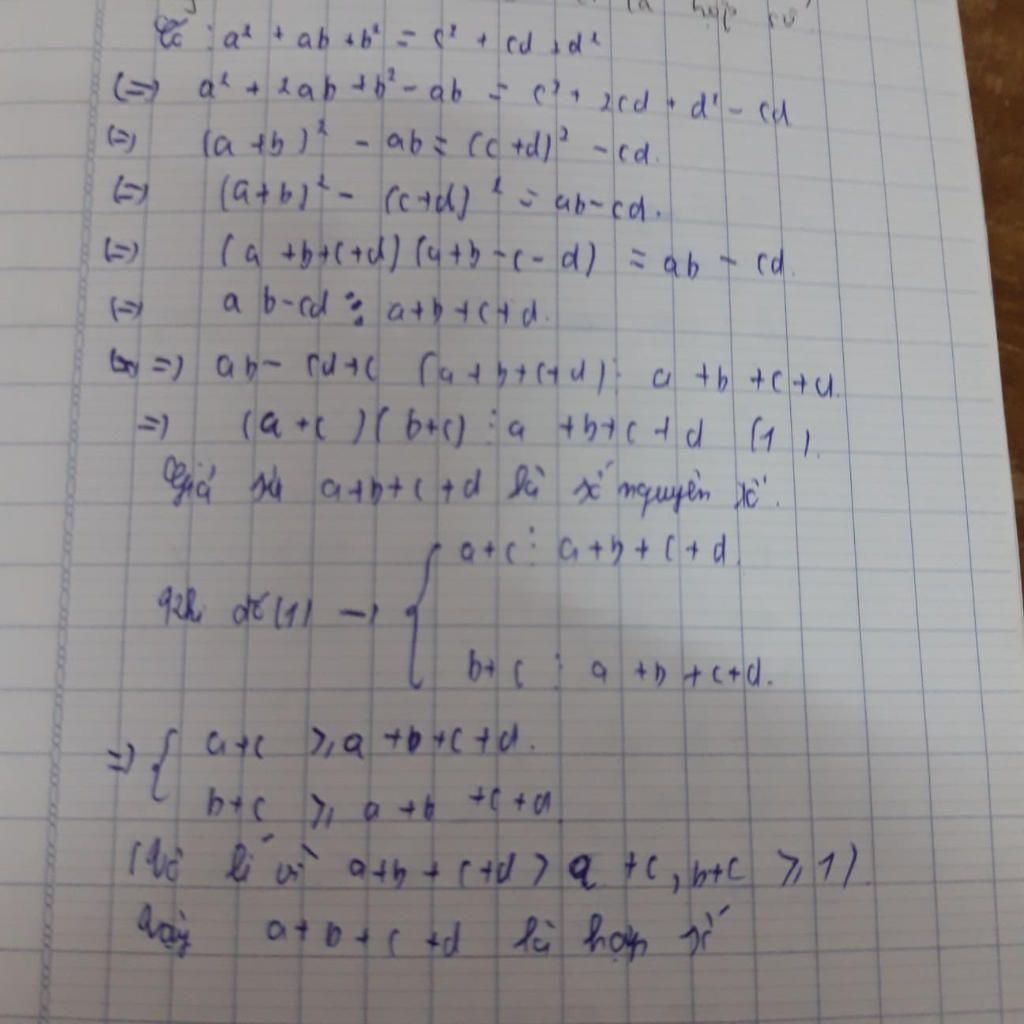 là hợp số
Có : a² + ab + b² = c² + cd + d²
(=) a² + 2ab + b² - ab = c² + 2cd + d² - cd
(=) (a + b)² - ab = (c + d)² - cd.
(=) (a+b)² - (c+d)² = ab - cd.
(=) (a + b + c + d) (a + b - c - d) = ab - cd.
(=) ab - cd ⋮ a + b + c + d.
=) ab - cd + c (a + b + c + d) ⋮ a + b + c + d.
=) (a + c) (b + c) ⋮ a + b + c + d (1).
Giả sử a + b + c + d là số nguyên tố.
a + c ⋮ a + b + c + d
Khi đó (1) →
b + c ⋮ a + b + c + d.
=) { a + c ≥ a + b + c + d.
b + c ≥ a + b + c + d
(Vô lí vì a + b + c + d > a + c, b + c ≥ 1).
Vậy a + b + c + d là hợp số